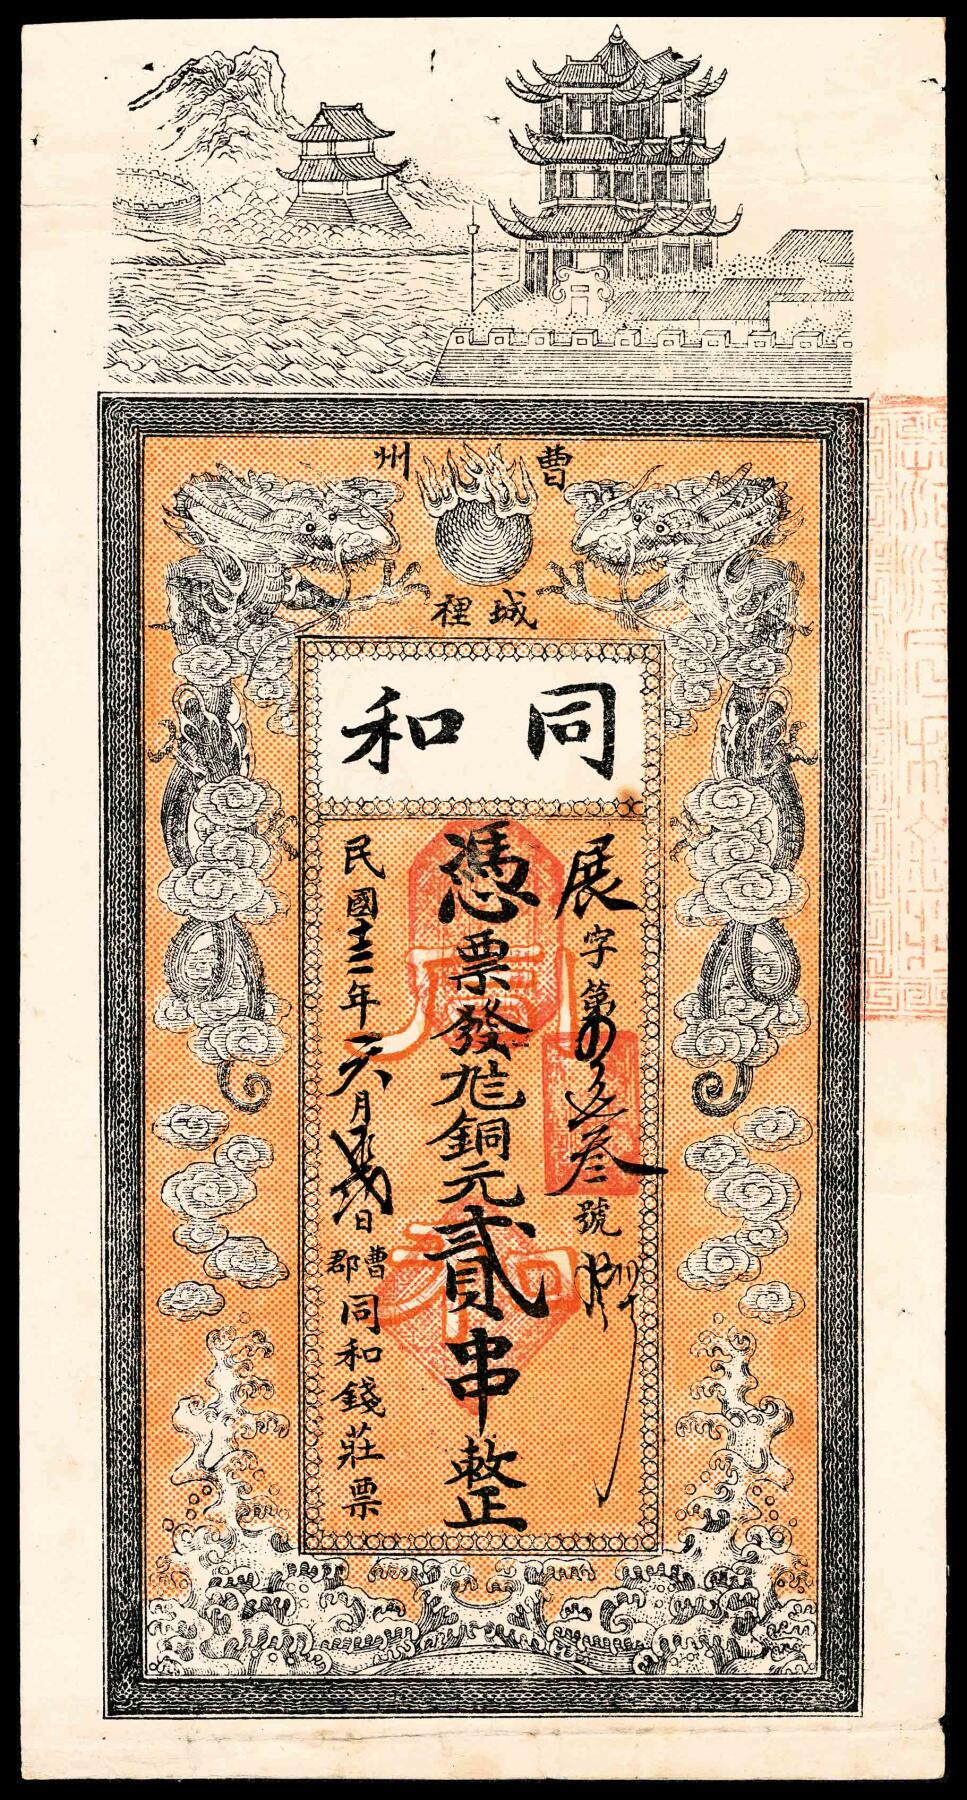 曹州
城裡
同和
展字第
叁號
憑票發兌銅元貳串整
民國十二年六月
日
曹郡同和錢莊票